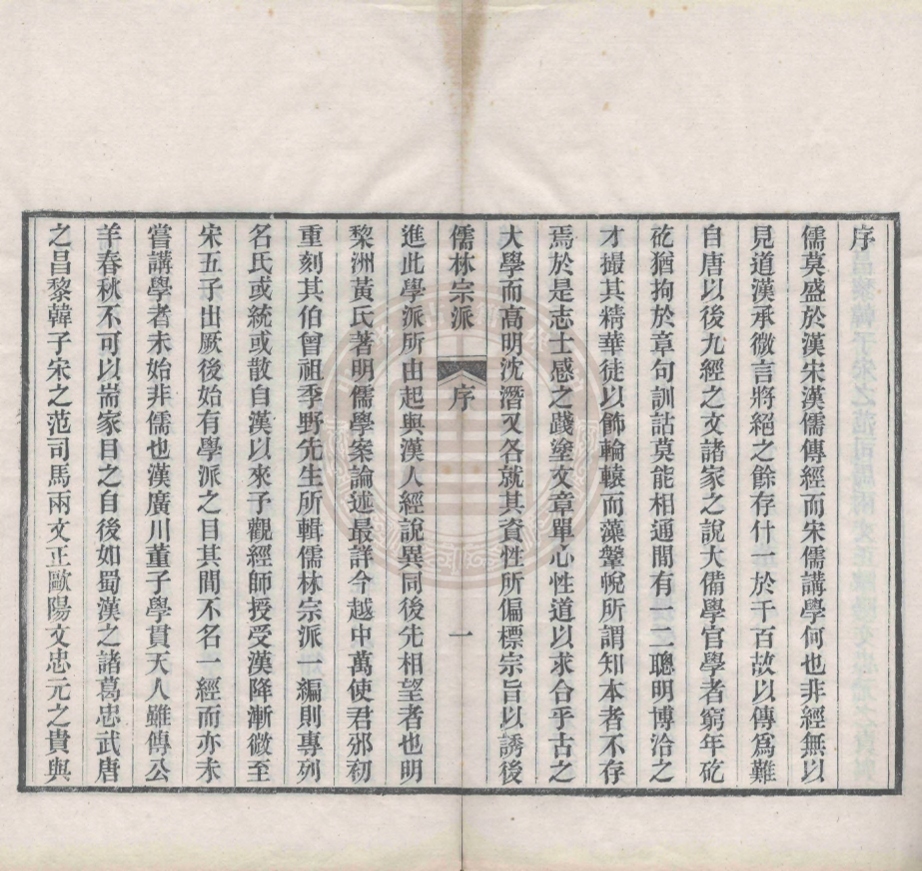 序
儒莫盛於漢宋漢儒傳經而宋儒講學何也非經無以
見道漢承微言將絕之餘存什一於千百故以傳爲難
自唐以後九經之文諸家之說大備學官學者窮年矻
矻猶拘於章句訓詁莫能相通閒有一二聰明博洽之
才撮其精華徒以飾輪轅而藻鞶帨所謂知本者不存
焉於是志士感之踐塗文章單心性道以求合乎古之
大學而高明沈潛又各就其資性所偏標宗旨以誘後
儒林宗派 序 一
進此學派所由起與漢人經說異同後先相望者也明
黎洲黃氏著明儒學案論述最詳今越中萬使君邠初
重刻其伯曾祖季野先生所輯儒林宗派一編則專列
名氏或統或散自漢以來予觀經師授受漢降漸微至
宋五子出厥後始有學派之目其間不名一經而亦未
嘗講學者未始非儒也漢廣川董子學貫天人雖傳公
羊春秋不可以耑家目之自後如蜀漢之諸葛忠武唐
之昌黎韓子宋之范司馬兩文正歐陽文忠元之貴與